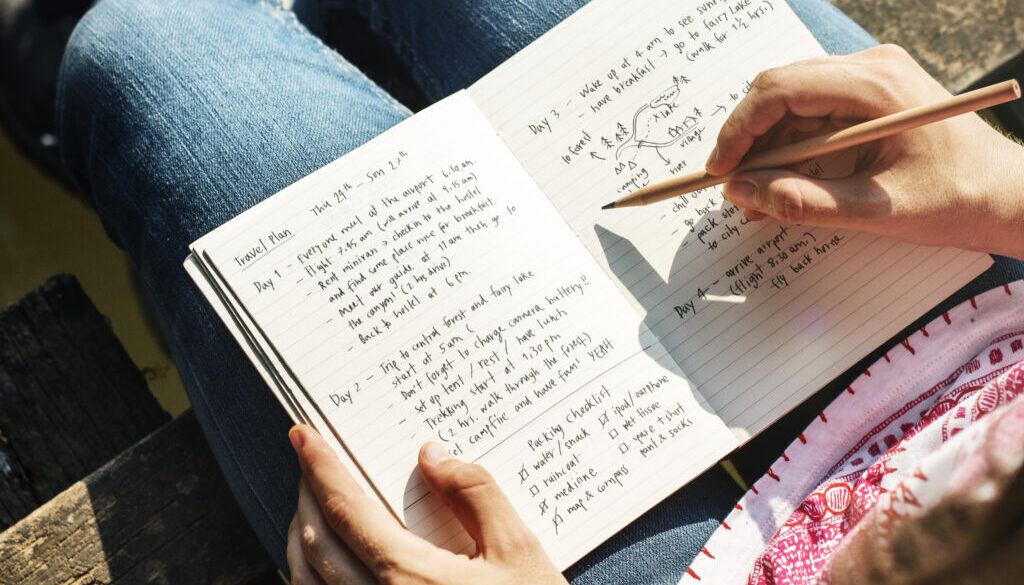 Thu 24th - Sun 27th
Travel Plan
Day 1 - Everyone meet at the airport 6.10 am.
Flight 7.45 am (will arrive at 9.15 am)
- Rent minivan → check in to the hostel
and find some place nice for breakfast.
- Meet our guide at 11 am then go to
the canyon! (2 hrs drive)
- Back to hostel at 6 pm.
Day 2 - Trip to central forest and fairy lake
start at 5 am (
- Don't forget to charge camera battery!!
- set up tent / rest / have lunch
- Trekking start at 1.30 pm
(2 hrs. walk through the forest)
campfire and have fun! YEAH
Packing Checklist
water/snack
ipod/earphone
raincoat
wet tissue
medicine
t-shirt
map & compass
& socks
Day 3 - Wake up at 4 am to see
- have breakfast → go to fairy lake
(walk for 1½ hrs.)
to forest
lake
village
river
camping
→ to
- chill out
- go back
pack
to city
Day 4 - arrive airport
(flight 8.30 am.)
fly back home